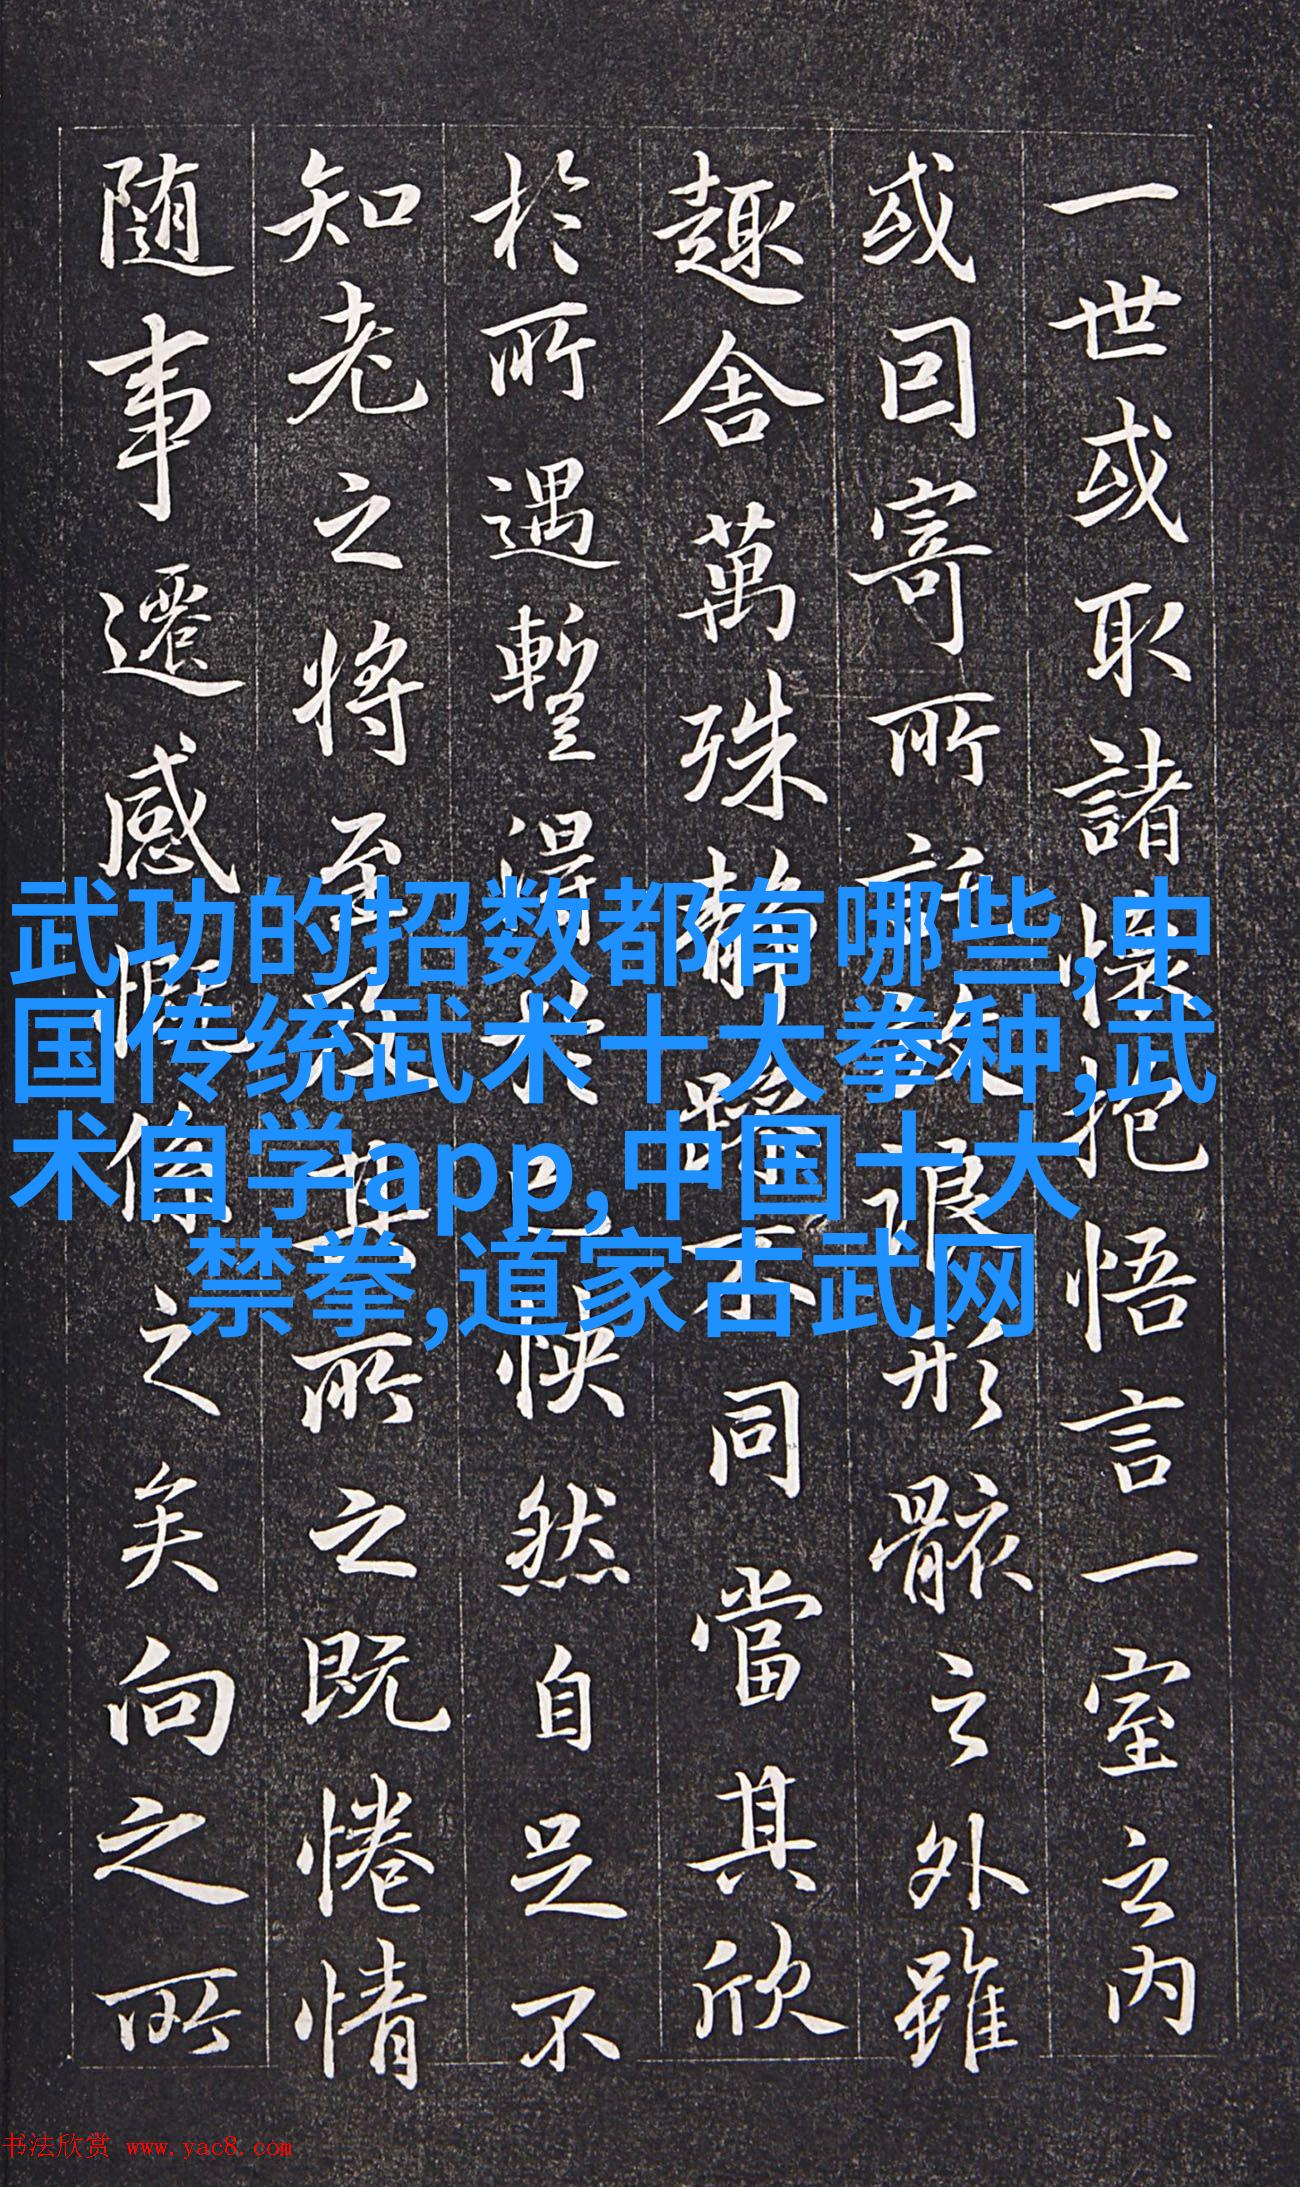 一世或取諸懷抱悟言一室之内
或囙寄所託放浪形骸之外雖
趣舍萬殊静躁不同當其欣
於所遇蹔得於己快然自足不
知老之將至及其所之既惓情
随事遷感慨係之矣向之所
武功的招数都有哪些,中
国传统武术十大拳种,武
术自学app,中国十大
禁拳,道家古武网
书法欣赏 www.yac8.com